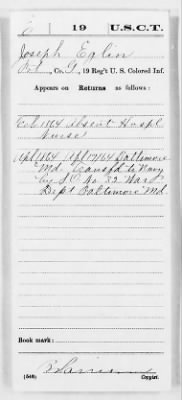 E 19 U.S.C.T.
Joseph Eglin
Pvt, Co. G, 19 Reg't U. S. Colored Inf.
Appears on Returns as follows:
Feb 1864 Absent Hospl
Nurse
Apl 1864 Apl 17/64 Baltimore
Md. Transfd to Navy
by S.O. No. 32 War
Dept Baltimore Md
Book mark:
(546) Copyist.